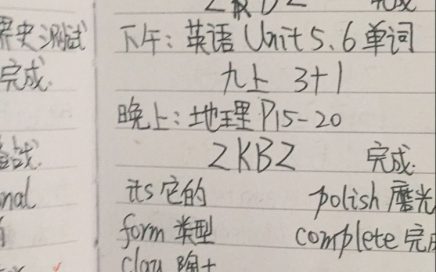 界史测试
完成.
nal
完成
下午: 英语 Unit 5、6 单词
九上 3+1
晚上: 地理 P15-20
ZKBZ 完成.
its 它的 polish 磨光
form 类型 complete 完成
clay 陶土